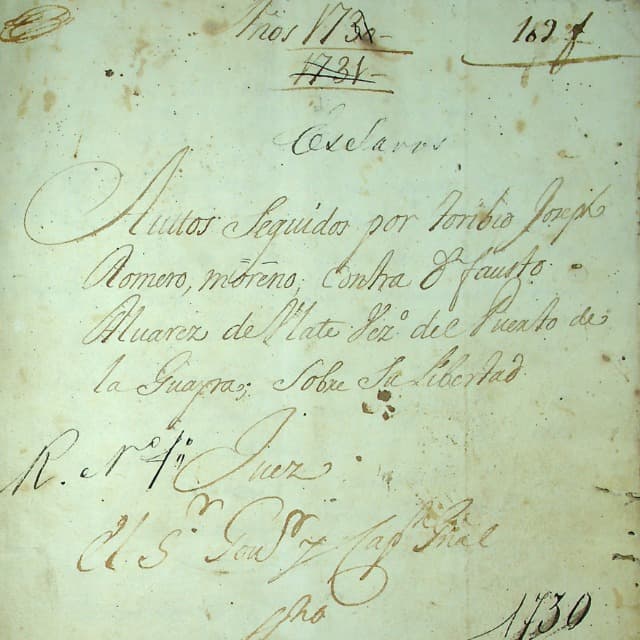 Años 1730
1731
162 f
Esclavos
Auttos Seguidos por Toribio Joseph
Romero, moreno, contra Dn fausto
Aluarez de Ulate Vezo del Puerto de
la Guayra; sobre Su Libertad
R. No 1o Juez
El Sr Gour y Capn Gñal
1730